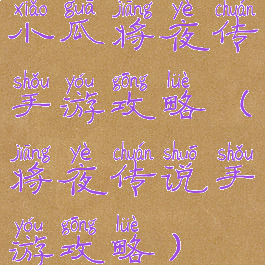 xiǎo guā jiāng yè chuán
小瓜将夜传
shǒu yóu gōng lüè
手游攻略（
jiāng yè chuán shuō shǒu
将夜传说手
yóu gōng lüè
游攻略）